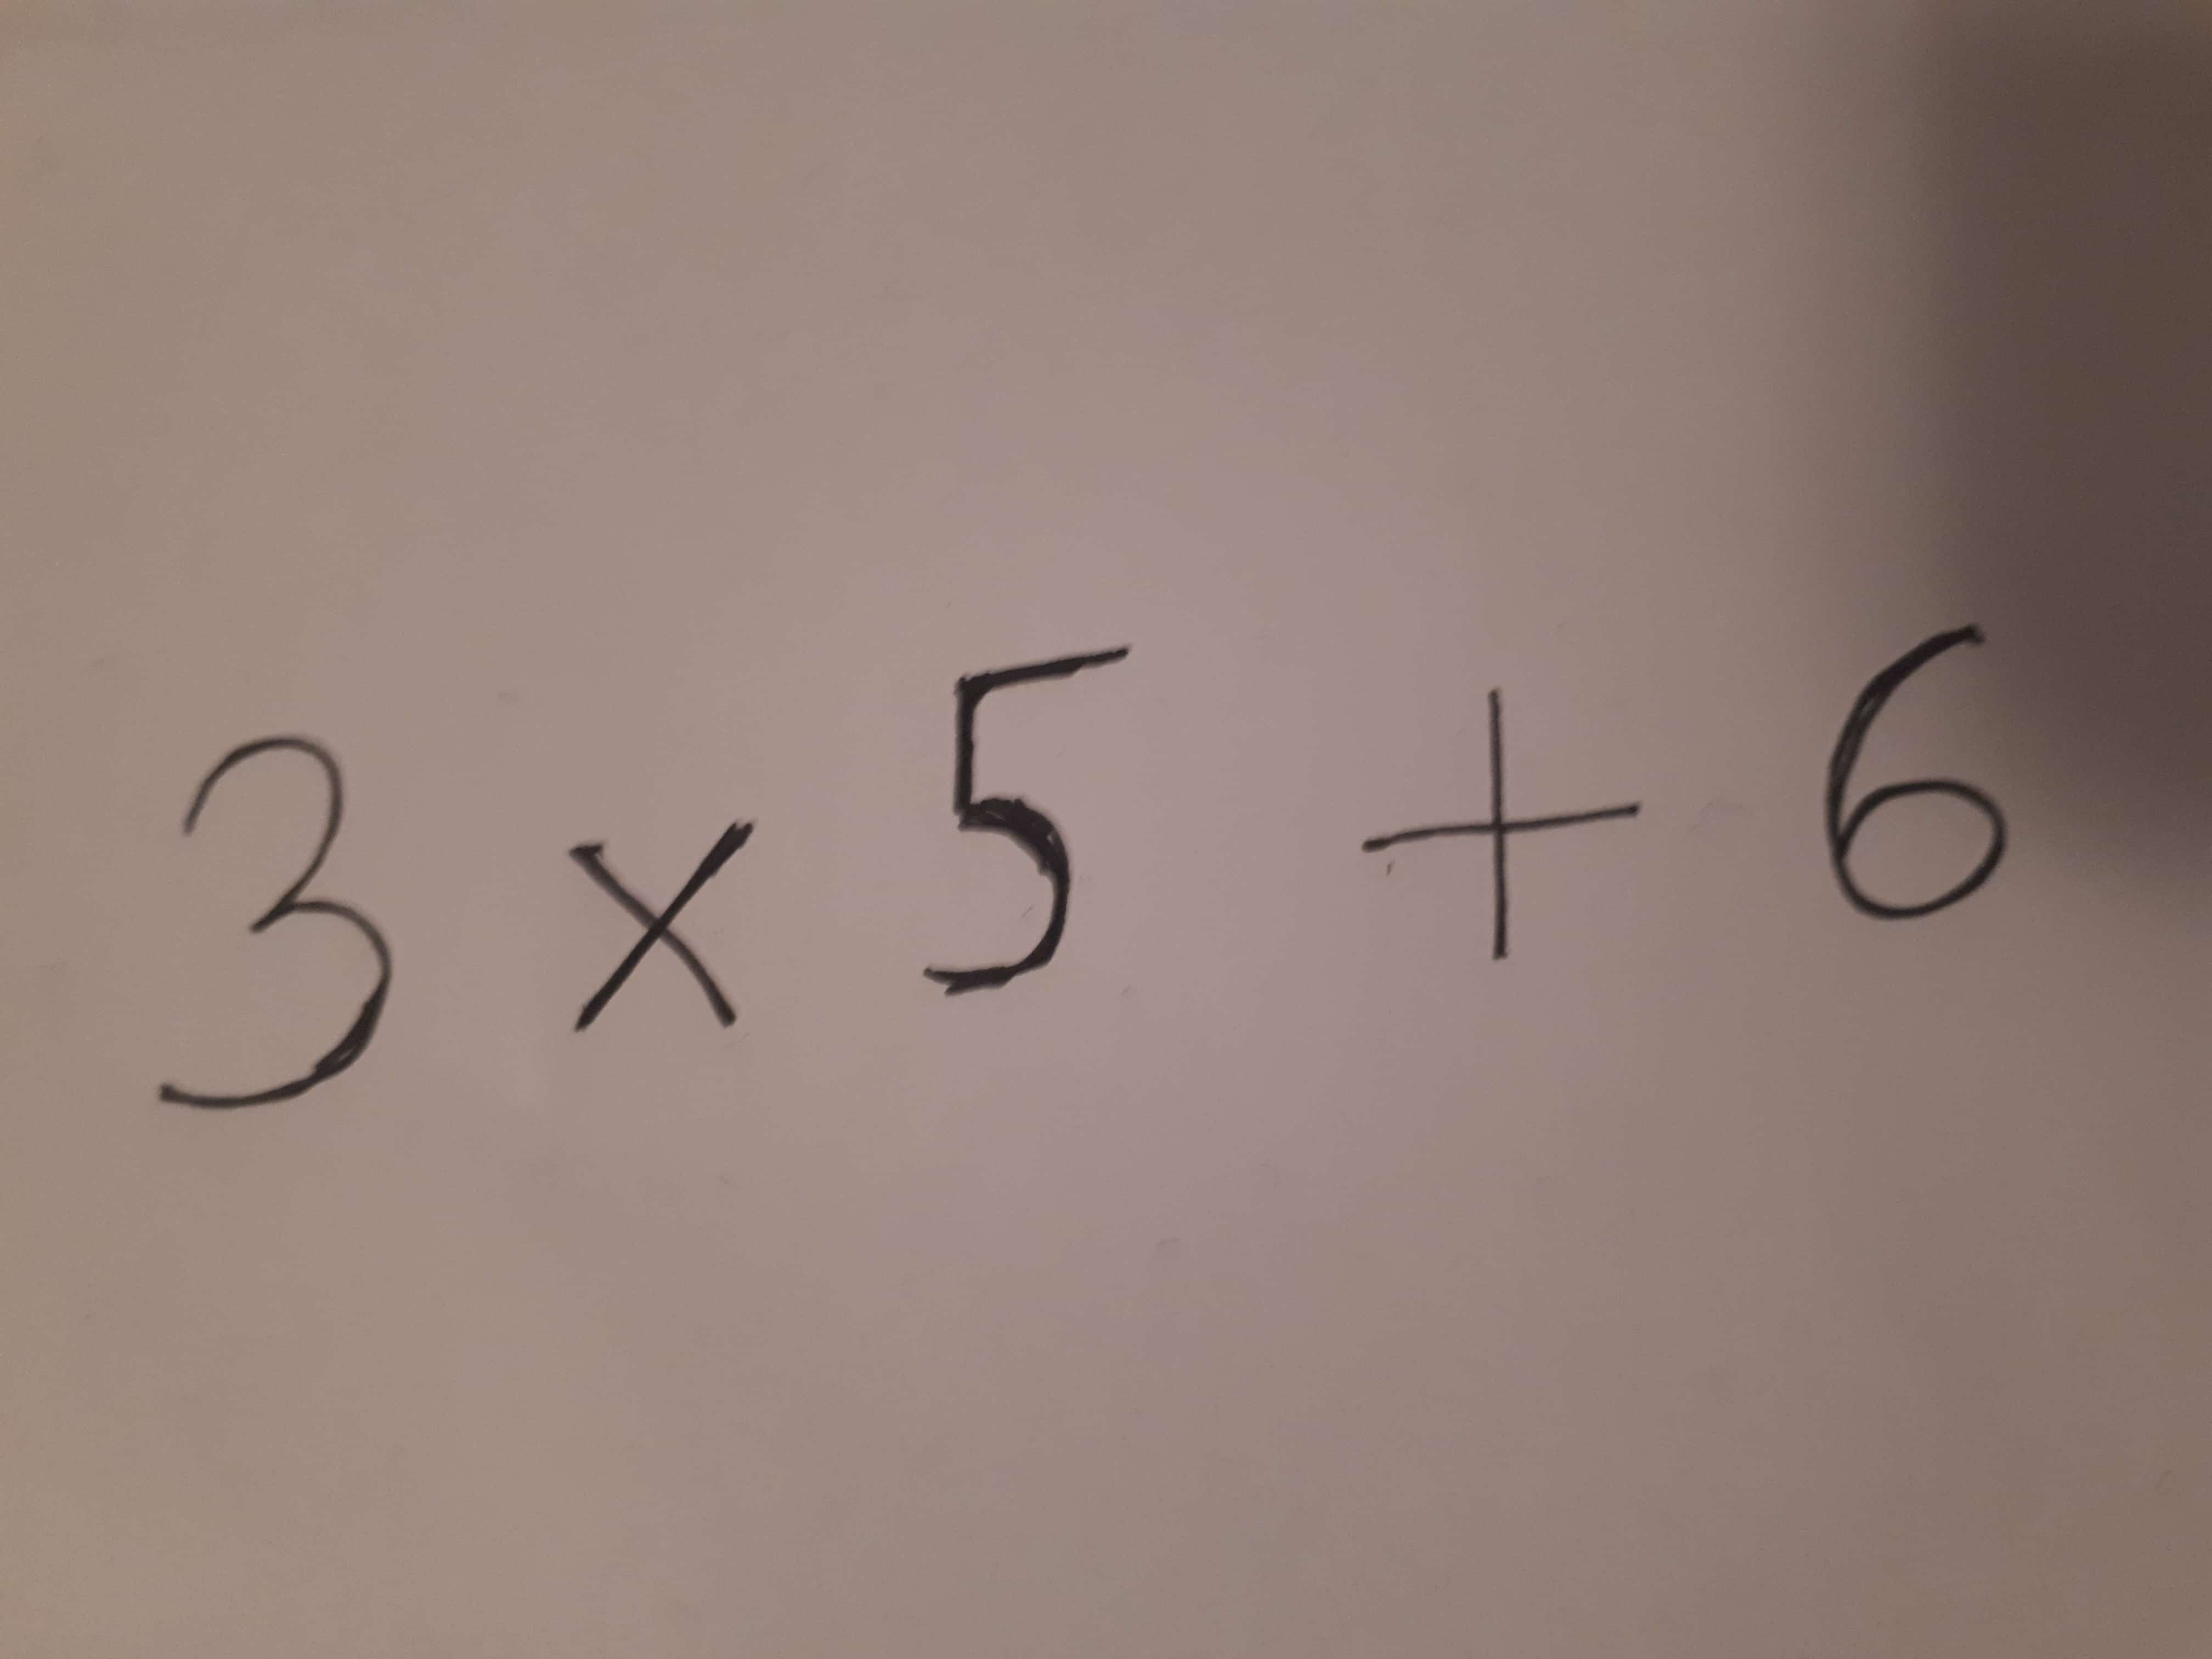 3 × 5 + 6